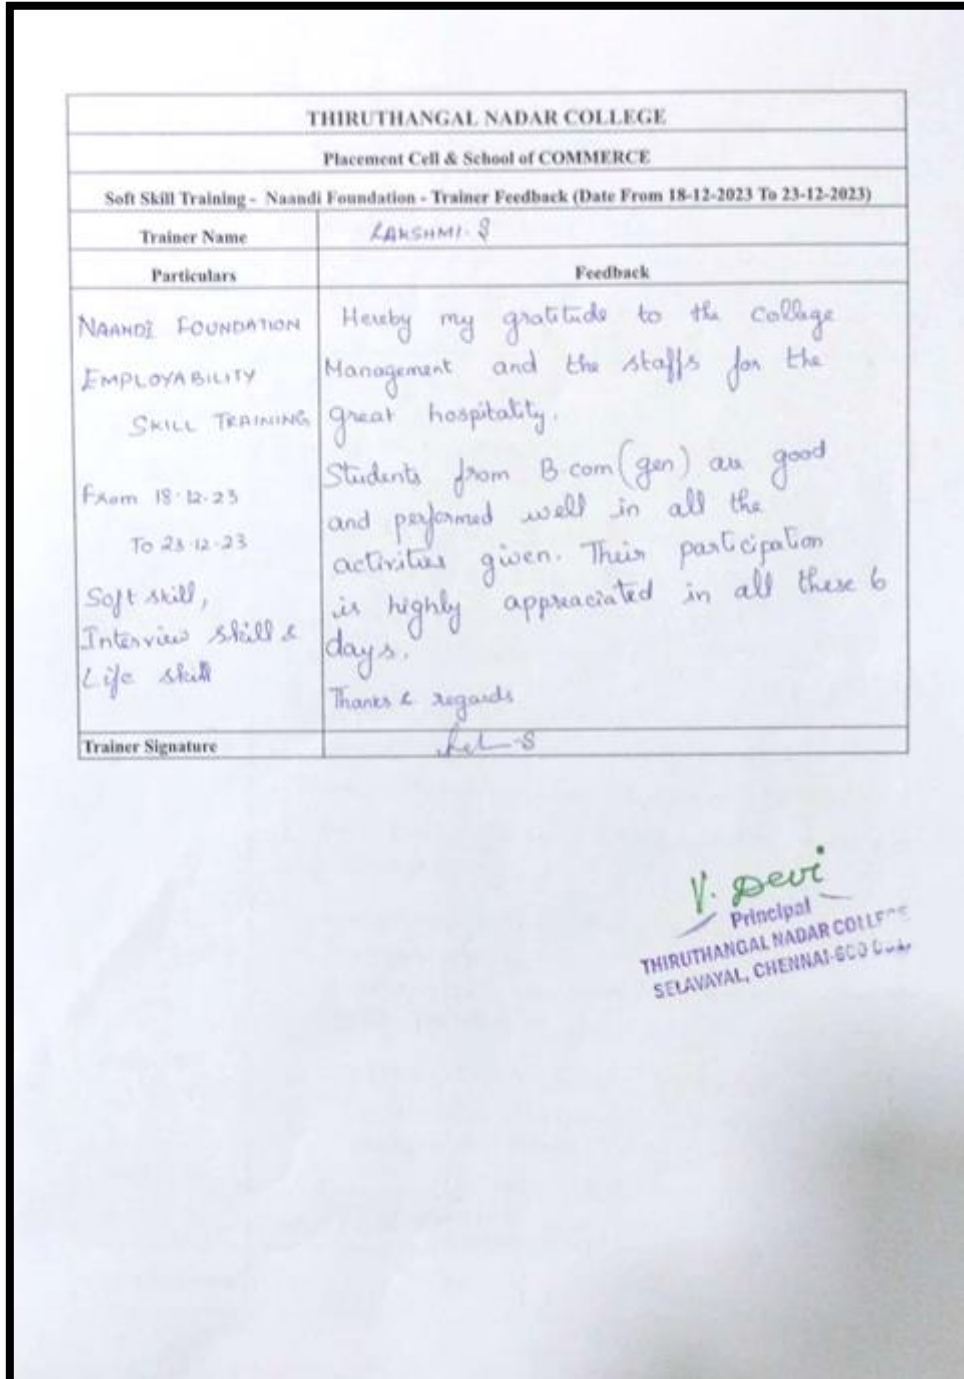 THIRUTHANGAL NADAR COLLEGE
Placement Cell & School of COMMERCE
Soft Skill Training - Naandi Foundation - Trainer Feedback (Date From 18-12-2023 To 23-12-2023)
Trainer Name
LAKSHMI. S
Particulars
Feedback
NAANDI FOUNDATION
EMPLOYABILITY
SKILL TRAINING
From 18-12-23
To 23-12-23
Soft skill,
Interview skill &
Life skill
Hereby my gratitude to the college
Management and the staffs for the
great hospitality.
Students from B com (gen) are good
and performed well in all the
activities given. Their participation
is highly appreaciated in all these 6
days.
Thanks & regards
Trainer Signature
V. Devi
Principal
THIRUTHANGAL NADAR COLLEGE
SELAVAYAL, CHENNAI-600